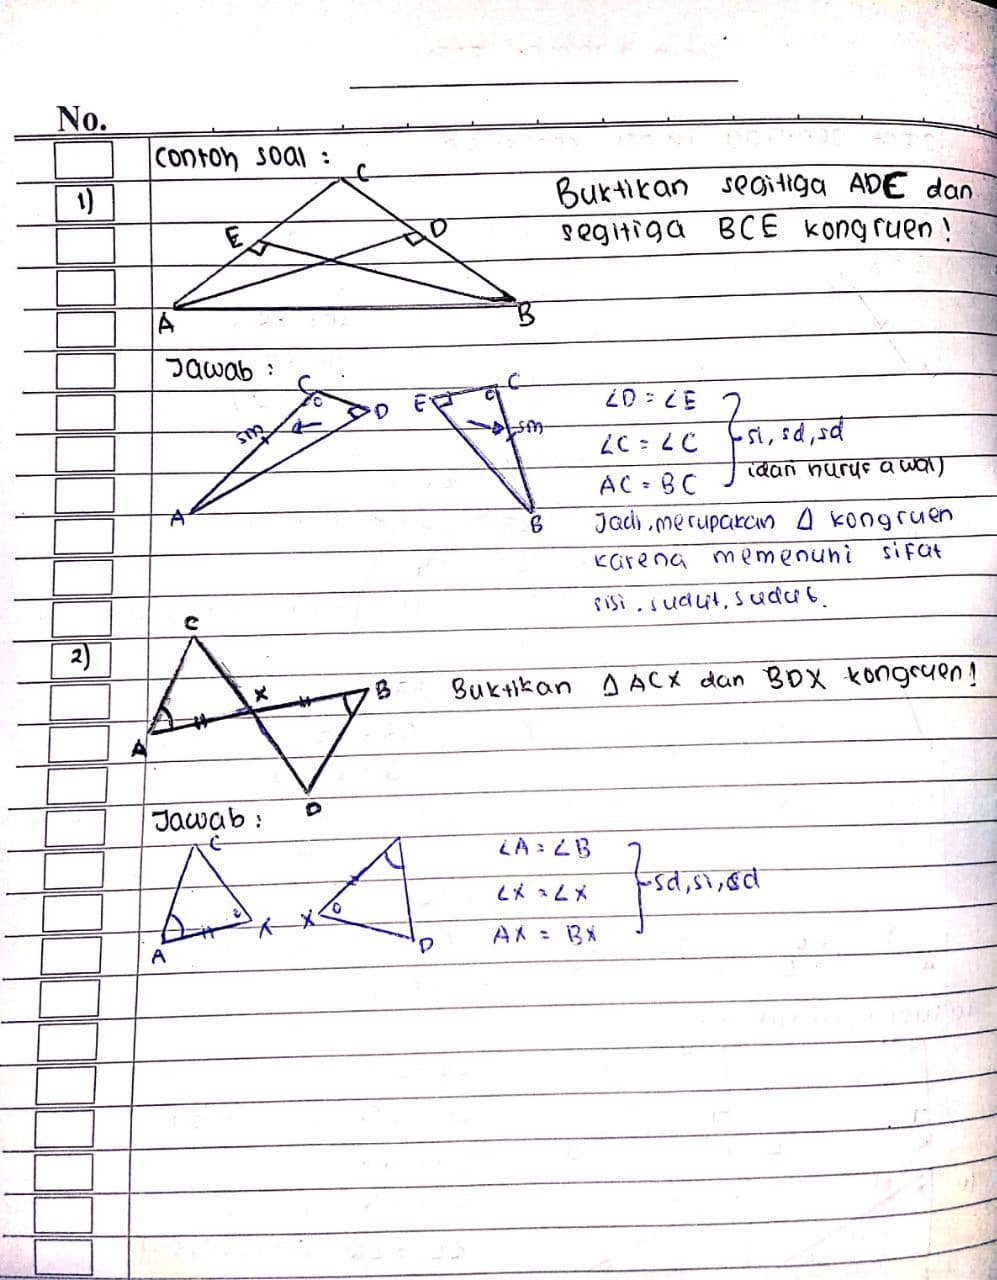 No.
Contoh soal :
1)
C
E
D
A
B
Buktikan segitiga ADE dan
segitiga BCE kongruen!
Jawab :
C
D
sm
A
E
C
sm
B
∠D = ∠E
∠C = ∠C
AC = BC
si, sd, sd
(dari huruf awal)
Jadi, merupakan Δ kongruen
karena memenuhi sifat
sisi, sudut, sudut.
2)
C
X
B
A
D
Buktikan Δ ACX dan BDX kongruen!
Jawab :
C
A
X
X
D
∠A = ∠B
∠X = ∠X
AX = BX
sd, si, sd